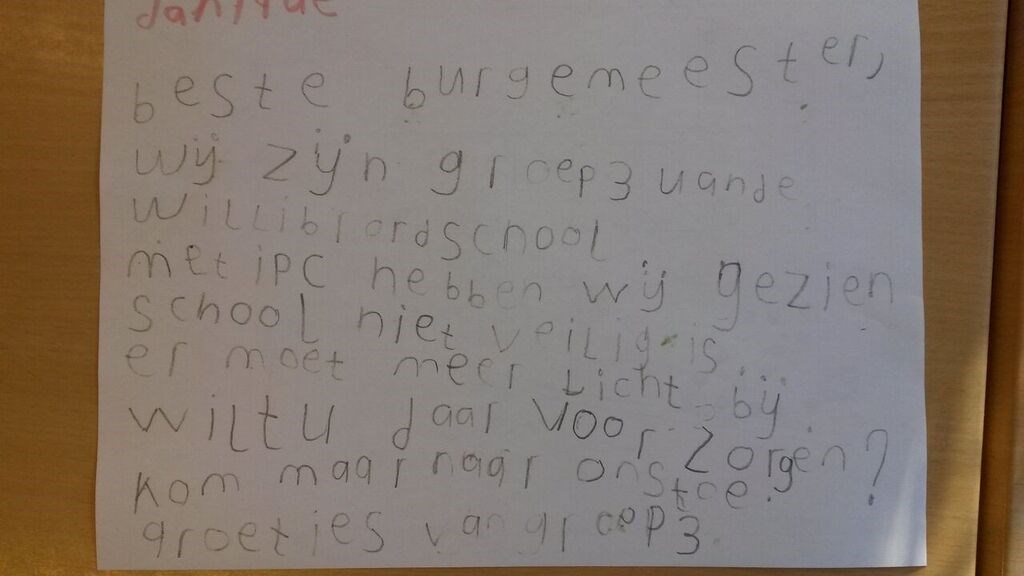 beste burgemeester,
wij zijn groep 3 vande
Willibrordschool
met ipc hebben wij gezien
school niet veilig is.
er moet meer licht bij.
wilt u daar voor zorgen?
kom maar naar ons toe.
groetjes van groep 3